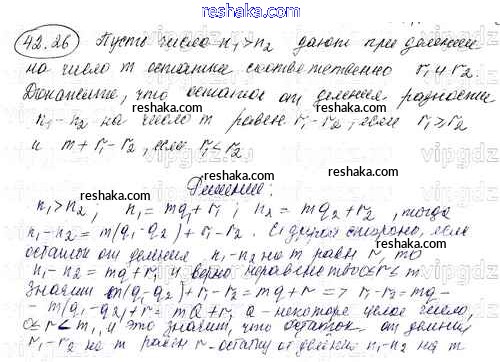 reshaka.com
42.26 Пусть числа n₁>n₂ дают при делении
на число m остатки соответственно r₁ и r₂.
reshaka.com
Докажите, что остаток от деления разности
n₁-n₂ на число m равен r₁-r₂, если r₁⩾r₂
reshaka.com
и m+r₁-r₂, если r₁<r₂
reshaka.com
Решение:
n₁>n₂, n₁=mq₁+r₁; n₂=mq₂+r₂, тогда
reshaka.com
n₁-n₂=m(q₁-q₂)+r₁-r₂. С другой стороны, если
остаток от деления n₁-n₂ на m равен r, то
reshaka.com
n₁-n₂=mq+r, и верно неравенство 0≤r<m
Значит m(q₁-q₂)+r₁-r₂=mq+r => r₁-r₂=mq-
-m(q₁-q₂)+r=mQ+r, Q-некоторое целое число,
reshaka.com
0≤r<m, и это значит, что остаток от деления
r₁-r₂ на m равен r-остатку от деления n₁-n₂ на m
reshaka.com